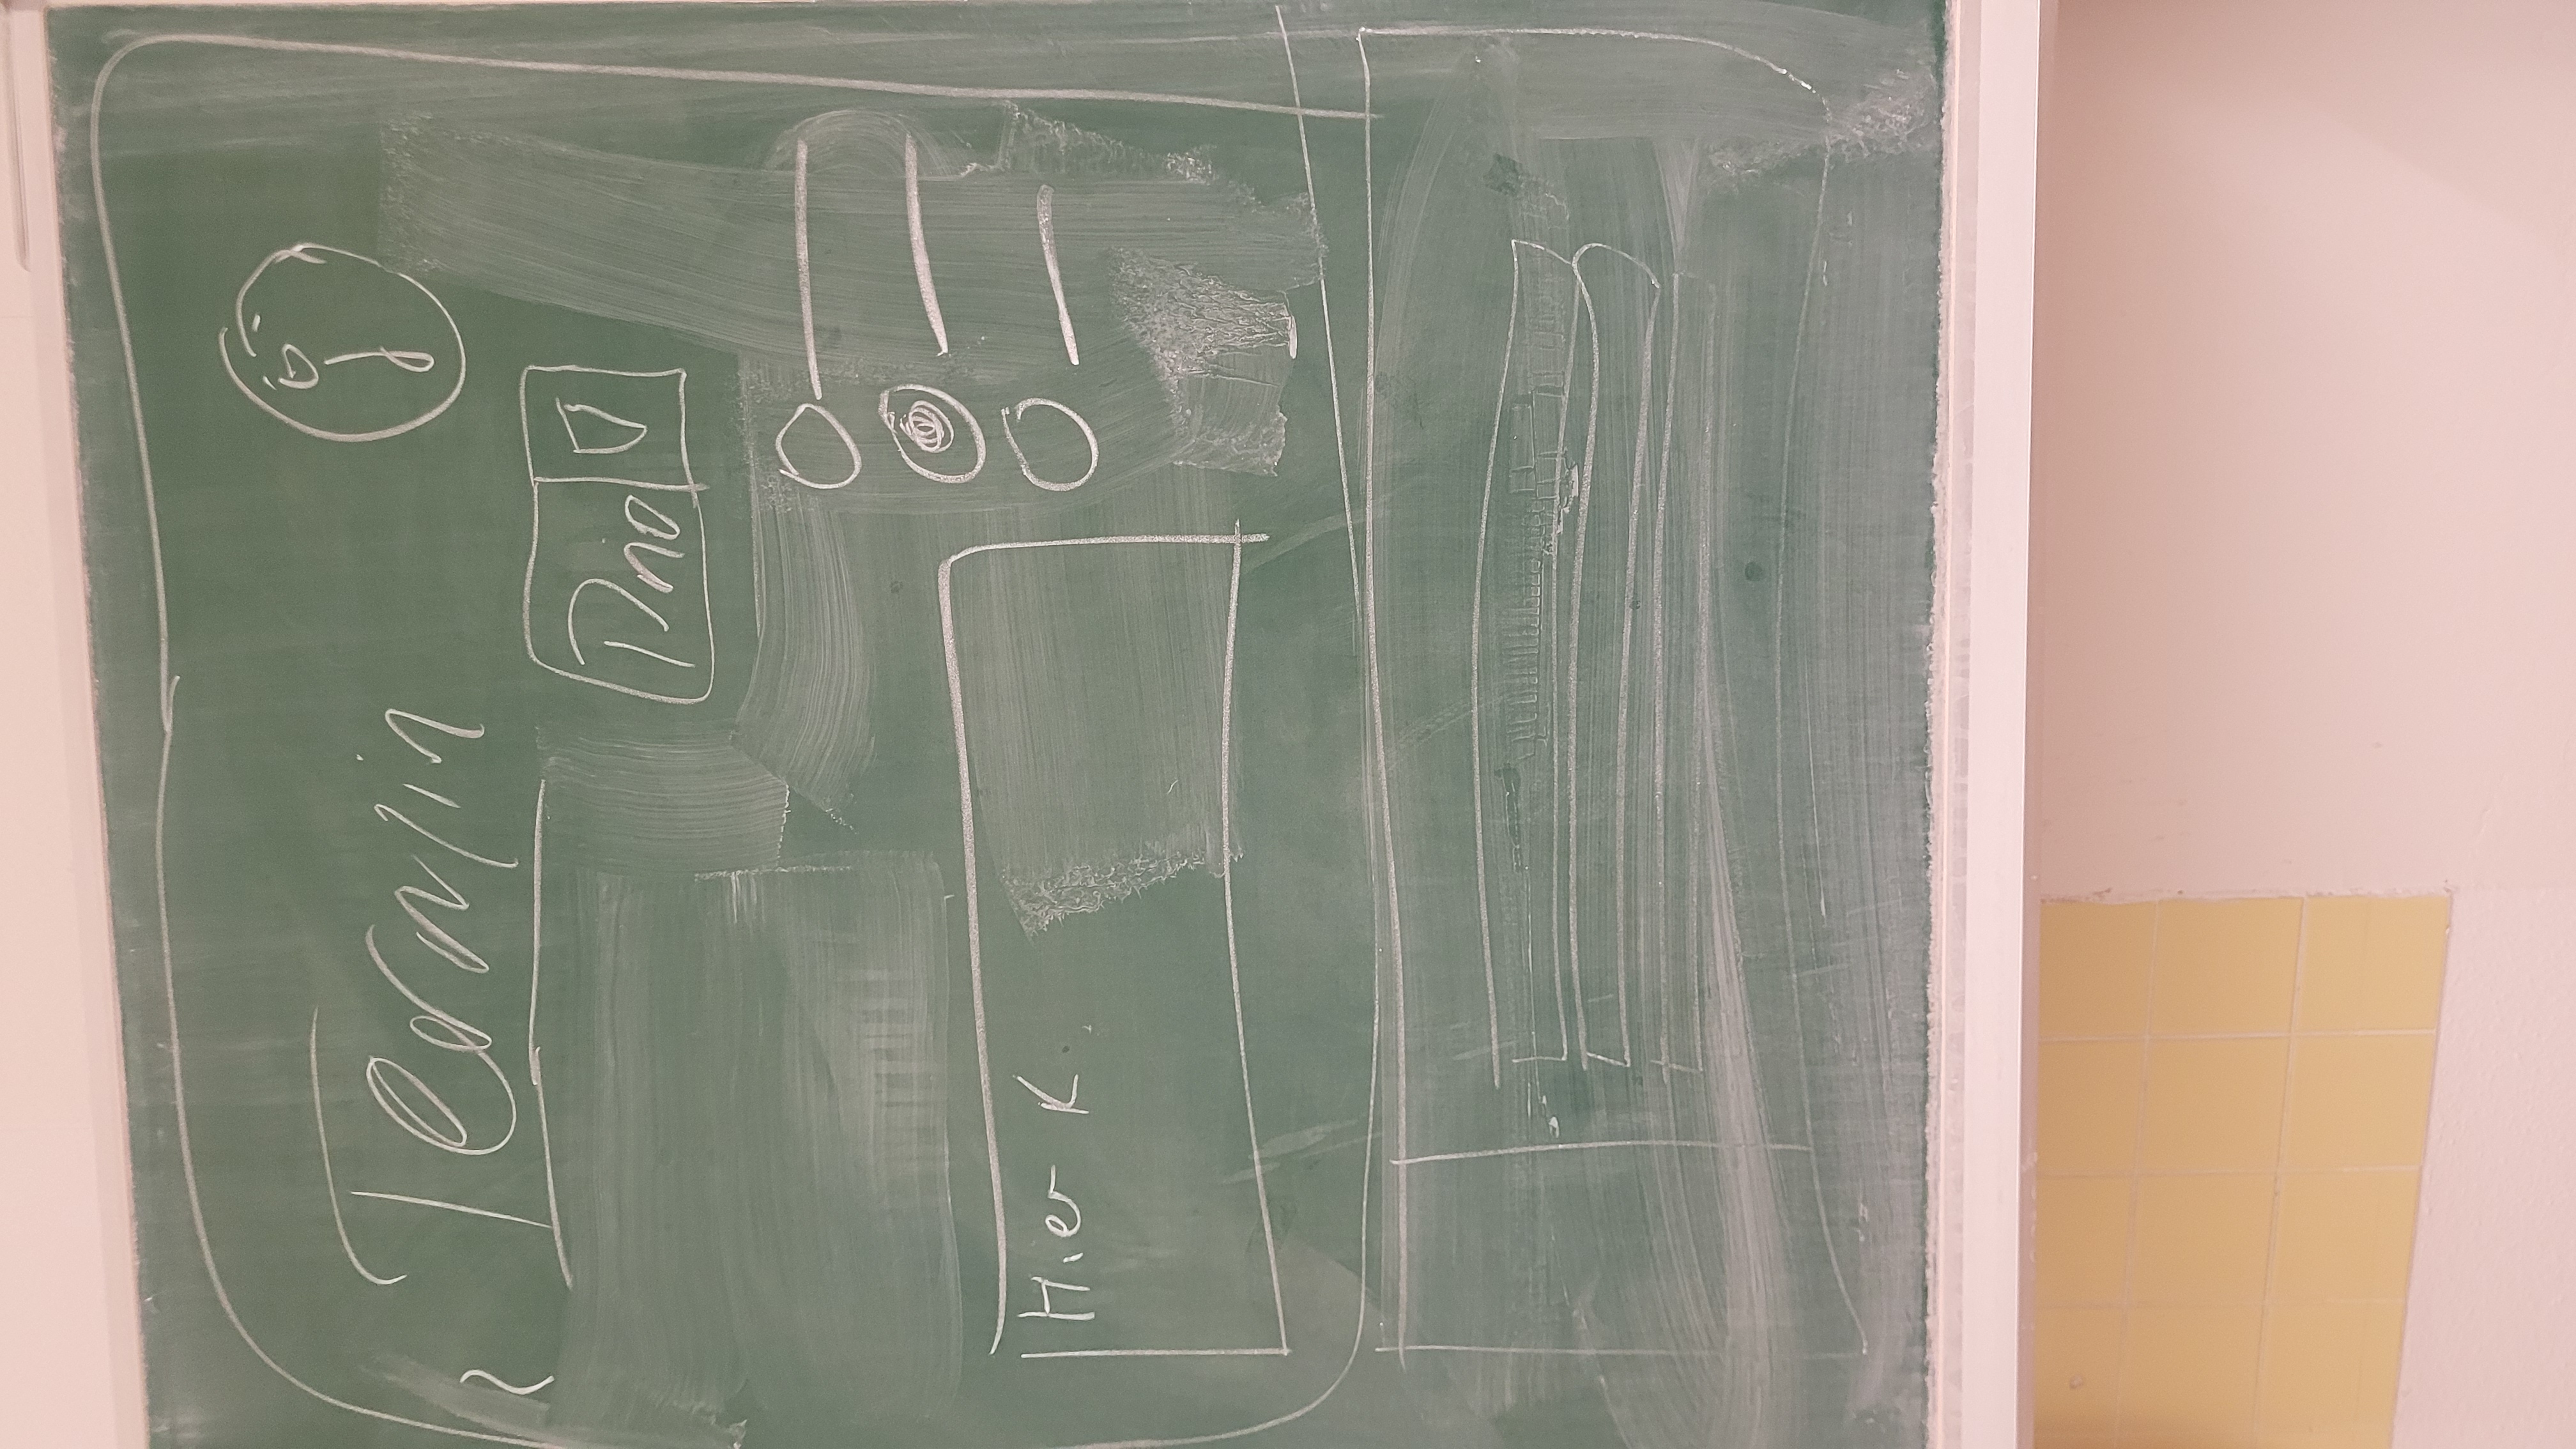 Termin
Prio
Hier K.